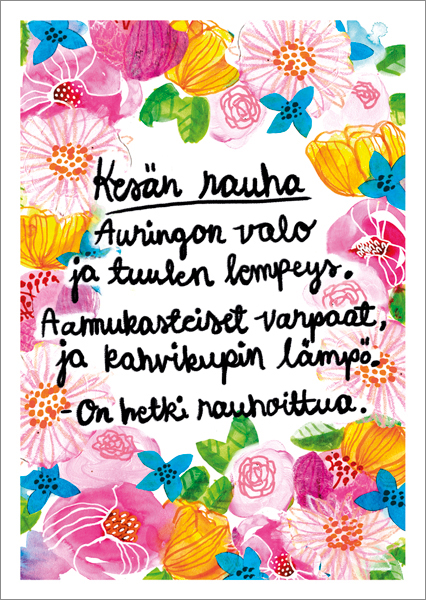 Kesän rauha
Auringon valo
ja tuulen lempeys.
Aamukasteiset varpaat,
ja kahvikupin lämpö.
-On hetki rauhoittua.